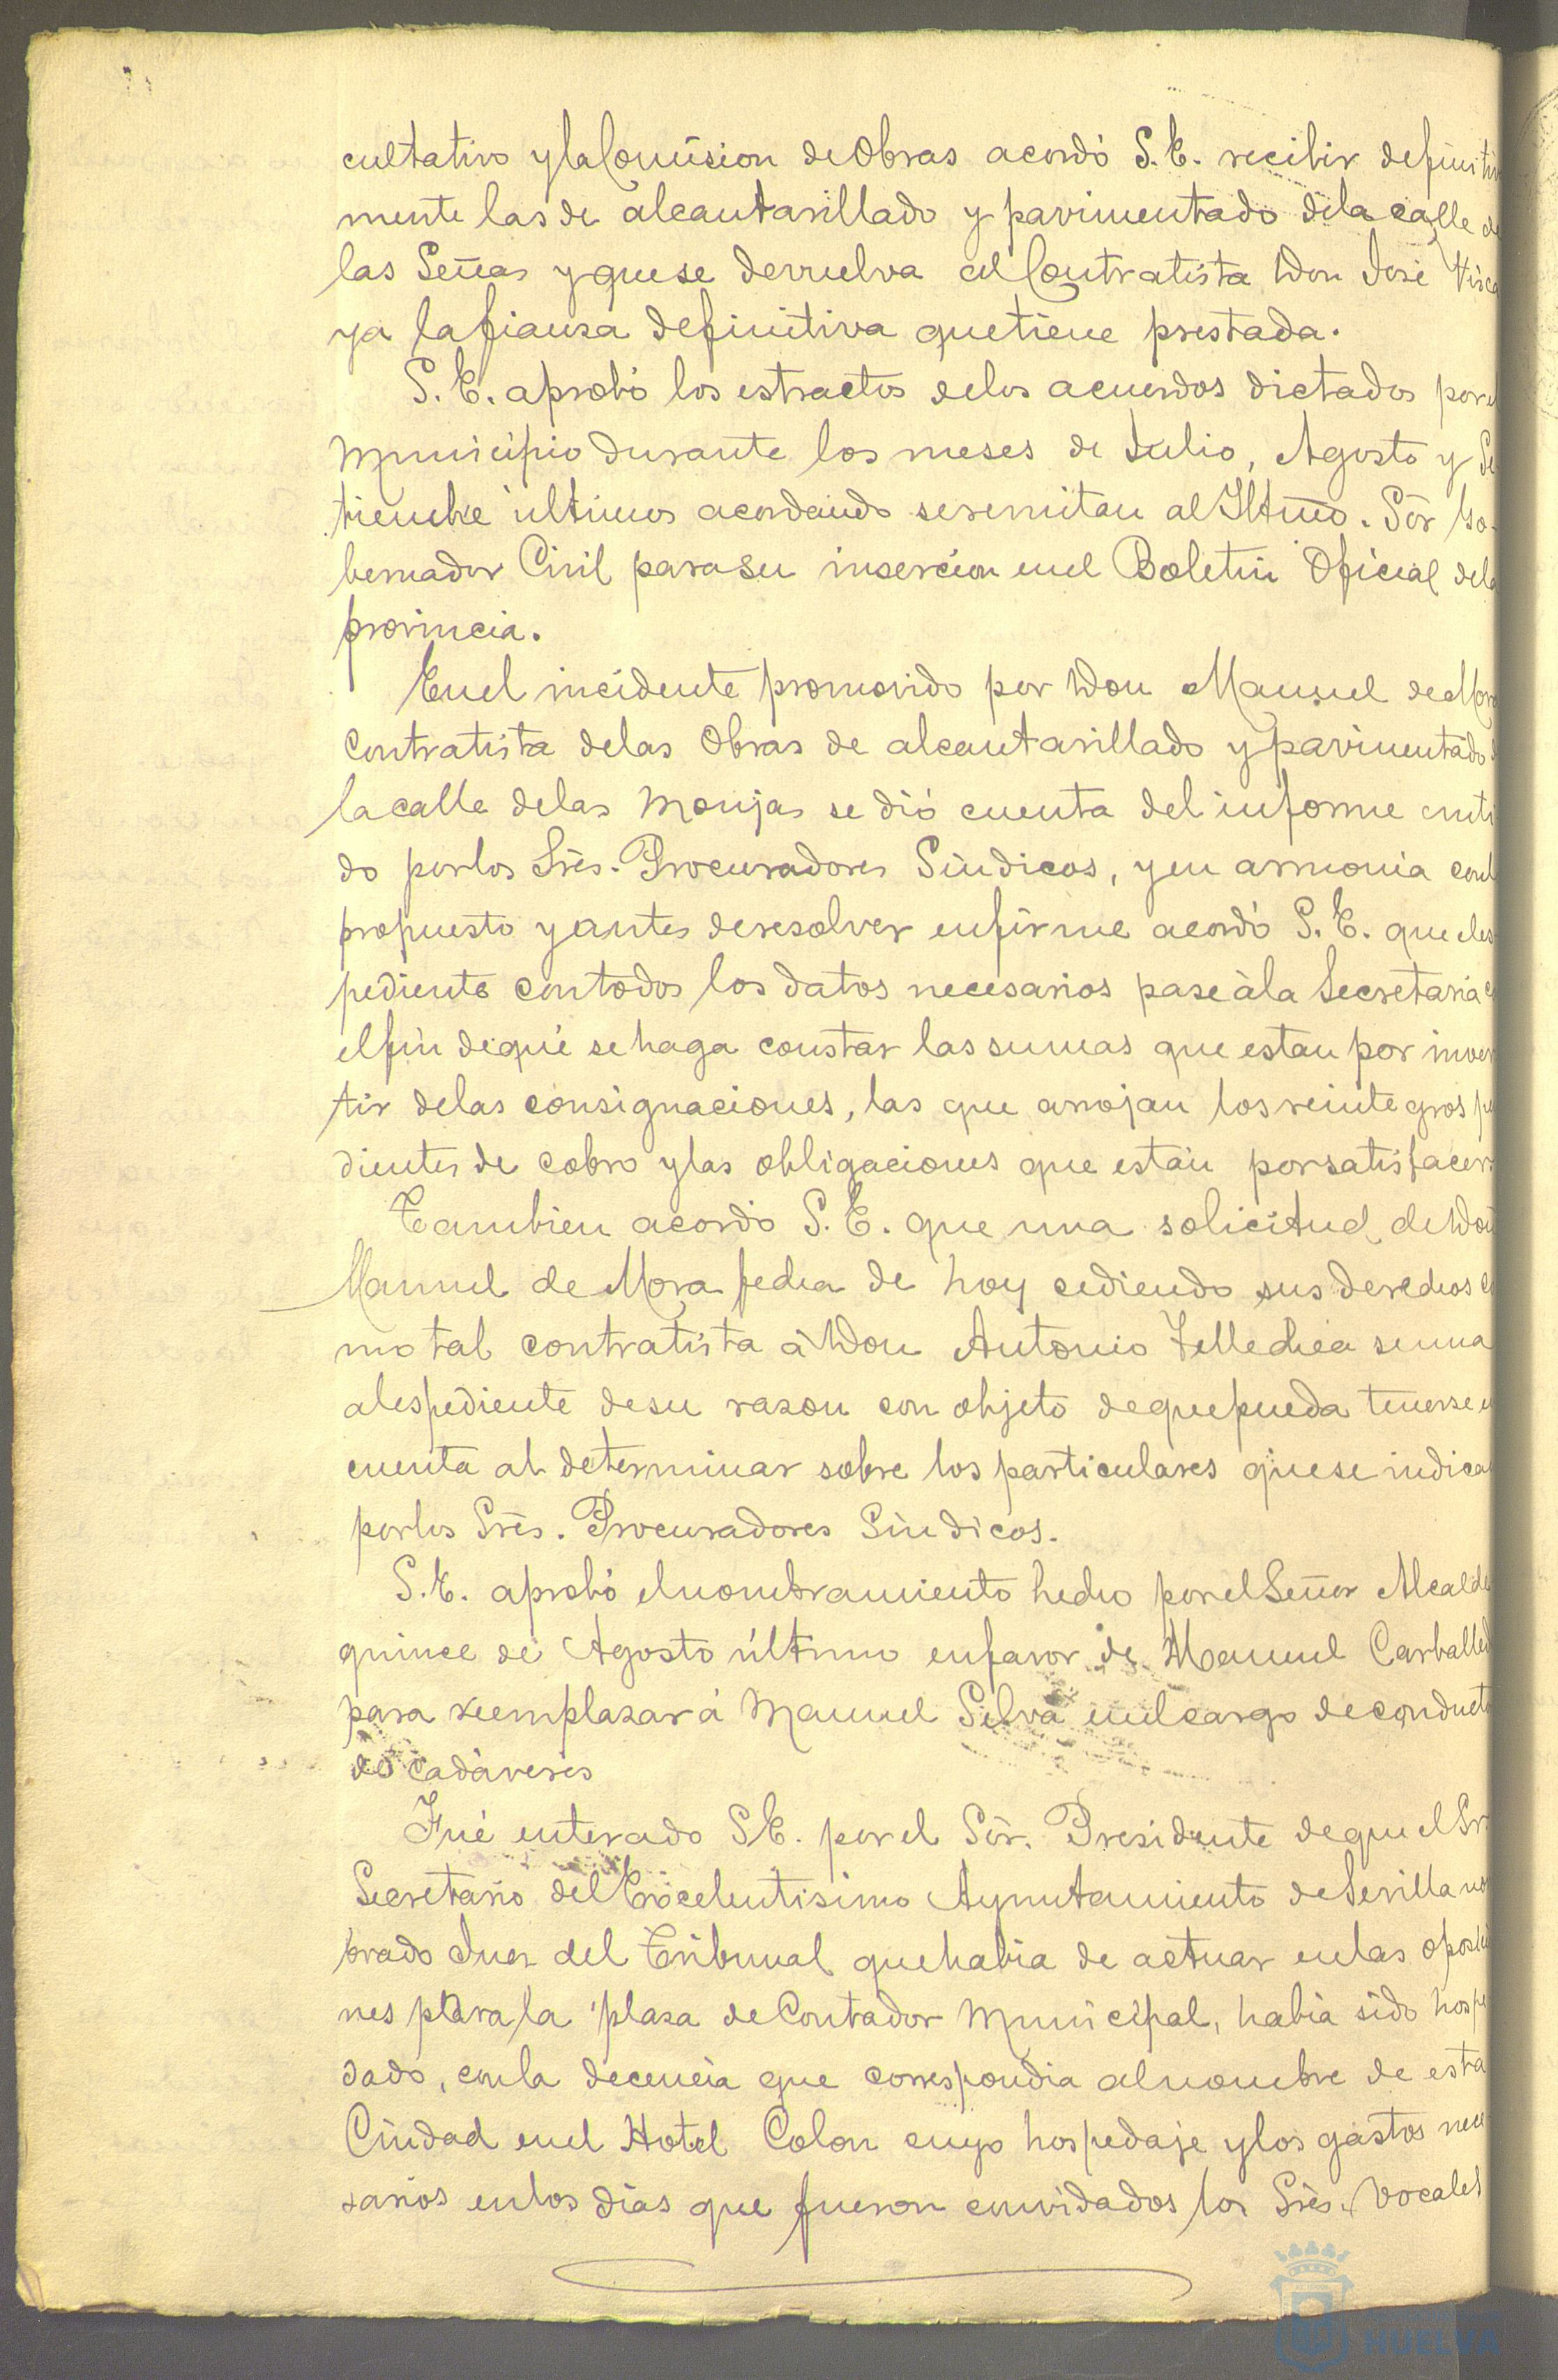 cultativo y la Comision de Obras acordó S.E. recibir definitiva
mente las de alcantarillado y pavimentado de la calle de
las Señas y que se devuelva al Contratista Don José Visca
ya la fianza definitiva que tiene prestada.
S.E. aprobó los estractos de los acuerdos dictados por el
Municipio durante los meses de Julio, Agosto y Se
tiembre últimos acordando se remitan al Iltmo. Sór Go-
bernador Civil para su insercion en el Boletin Oficial de la
provincia.
En el incidente promovido por Don Manuel de Mora
contratista de las Obras de alcantarillado y pavimentado de
la calle de las Monjas se dió cuenta del informe emiti
do por los Srès. Procuradores Síndicos, y en armonia con lo
propuesto y antes de resolver en firme acordó S.E. que el es
pediente con todos los datos necesarios pase à la Secretaria con
el fin de que se haga constar las sumas que estan por inver
tir de las consignaciones, las que arrojan los reintegros pen
dientes de cobro y las obligaciones que están por satisfacer
Tambien acordó S.E. que una solicitud de Don
Manuel de Mora fecha de hoy cediendo sus derechos co
mo tal contratista à Don Antonio Tellechea se una
al espediente de su razon con objeto de que pueda tenerse en
cuenta al determinar sobre los particulares que se indican
por los Srès. Procuradores Síndicos.
S.E. aprobó el nombramiento hecho por el Señor Alcalde
quince de Agosto último en favor de Manuel Carballed
para reemplazar á Manuel Silva en el cargo de conducto
de cadáveres
Fué enterado S.E. por el Sór. Presidente de que el Sr
Secretario del Excelentisimo Ayuntamiento de Sevilla no
brado Juez del Tribunal que habia de actuar en las oposicio
nes para la plaza de Contador Municipal, habia sido hospe
dado, con la decencia que correspondia al nombre de esta
Ciudad en el Hotel Colon cuyo hospedaje y los gastos nece
sarios en los dias que fueron convidados los Srès. Vocales
HUELVA